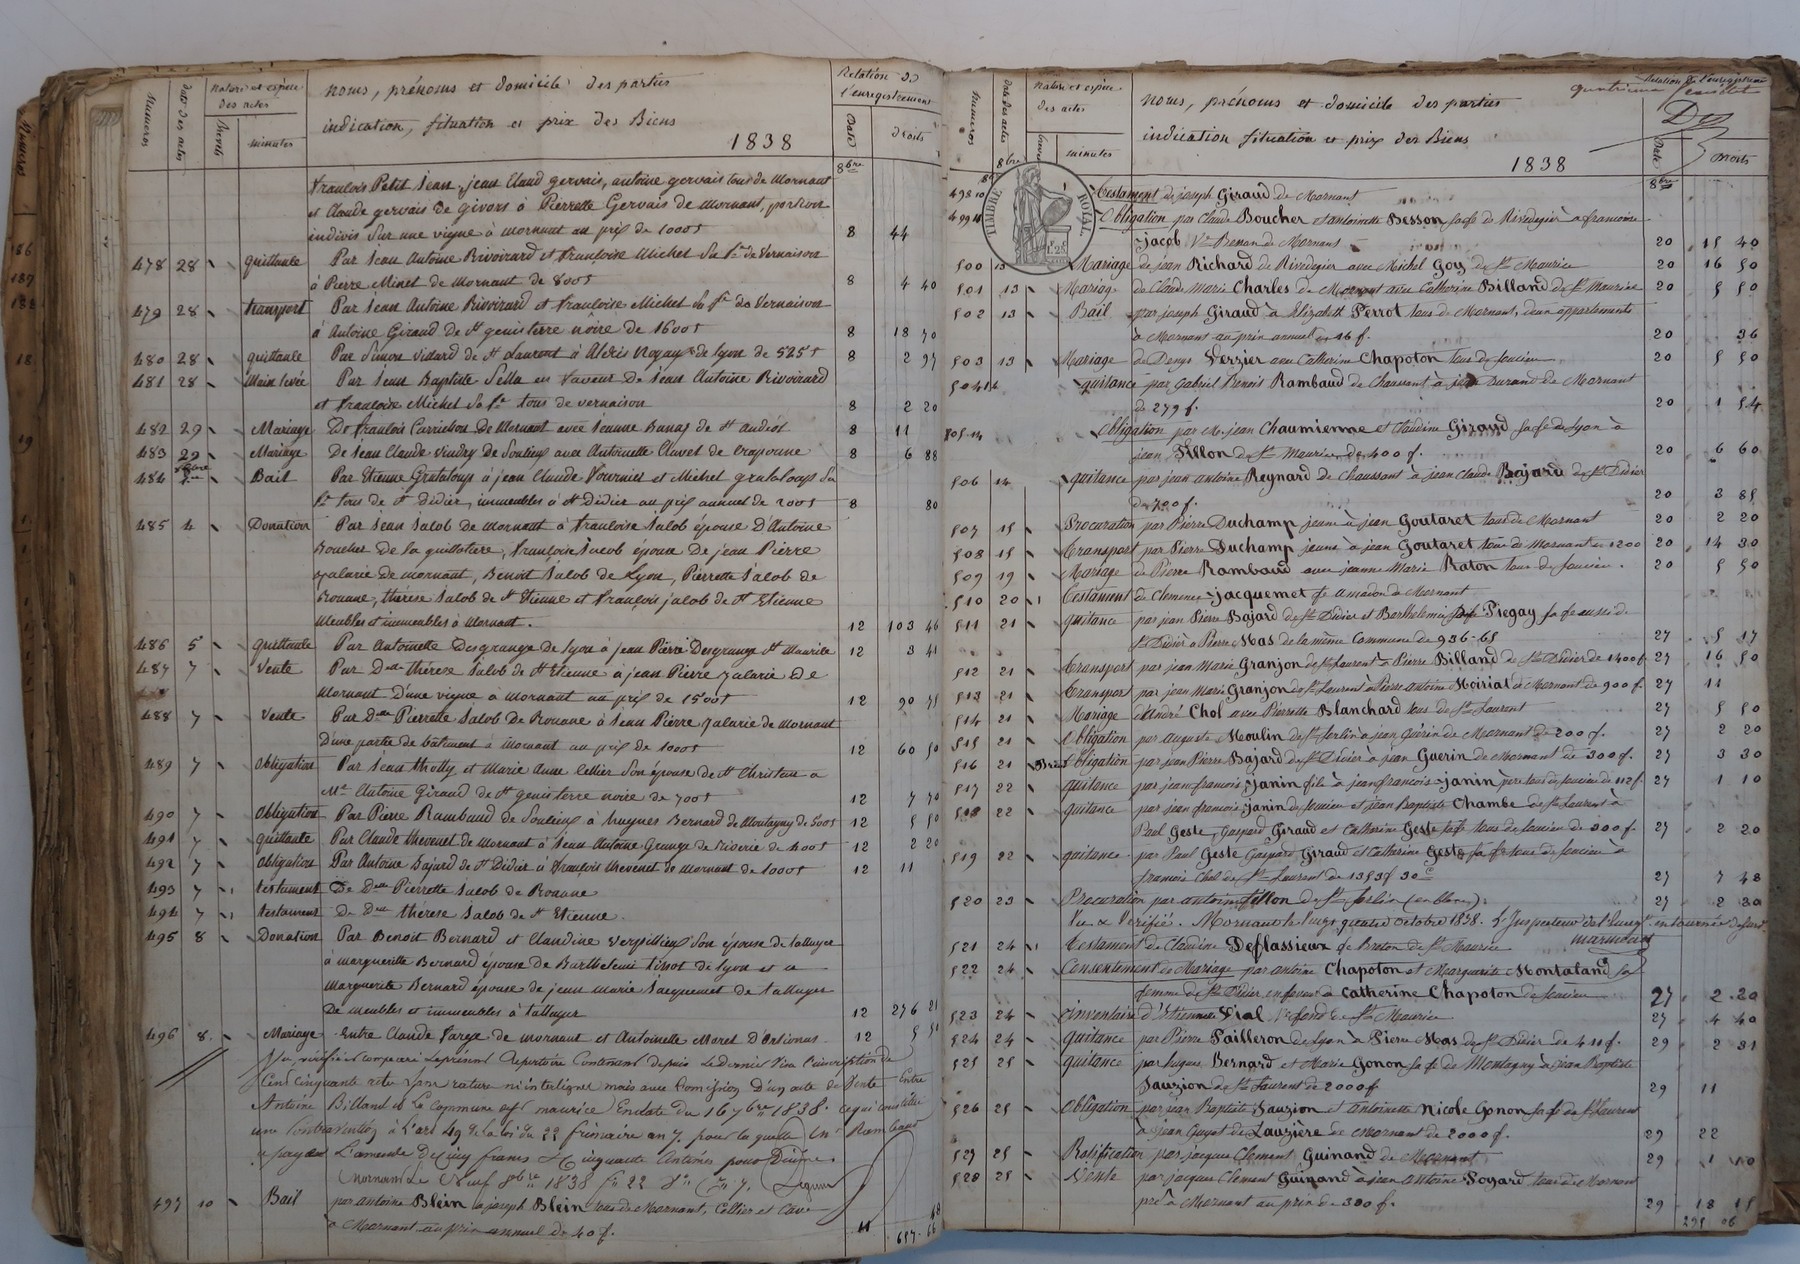 Numéros date des actes nature et espèce des actes Brevets minutes
noms, prénoms et domicile des parties
indication, situation et prix des Biens
1838
Relation de l'enregistrement Date Droits
8bre
françois Petit Jean, jean Claud gervais, antoine gervais tous de Mornant
et Claude gervais de givors à Pierrette Gervais de Mornant, portion
indivis sur une vigne à mornant au prix de 1000f 8 44
478 28 quittance Par Jean Antoine Rivoirard et françoise Michel sa fe de Vernaison
à Pierre Minet de Mornant de 800f 8 4 40
479 28 transport Par Jean Antoine Rivoirard et françoise Michel sa fe de Vernaison
à Antoine Giraud de St genis terre noire de 1600f 8 18 70
480 28 quittance Par Simon Vidard de St Laurent à Alexis Noyay de lyon de 525f 8 2 97
481 28 Main levée Par Jean Baptiste Sella en faveur de Jean Antoine Rivoirard
et françoise Michel sa fe tous de vernaison 8 2 20
482 29 Mariage De françois Carrichon de Mornant avec Jeanne Bunaz de St andéol 8 11
483 29 Mariage De Jean Claude Vindry de Soucieu avec Antoinette Clavet de Craponne 8 6 88
484 Bail Par Etienne Grataloup à jean Claude fournier et Michel grataloup sa
fe tous de St Didier, immeubles à St Didier au prix annuel de 200f 8 80
485 4 Donation Par Jean Jacob de Mornant à françoise Jacob épouse d'Antoine
Boucher de la guillotière, françoise Jacob épouse de jean Pierre
Jalarie de mornant, Benoit Jacob de Lyon, Pierrette Jacob de
Roanne, thérèse Jacob de St Etienne et françois jacob de St Etienne
Meubles et immeubles à Mornant. 12 103 46
486 5 quittance Par Antoinette Desgrange de lyon à jean Pierre Desgrange St Maurice 12 3 41
487 7 Vente Par Delle thérèse Jacob de St Etienne à jean Pierre Jalarie de
Mornant d'une vigne à mornant au prix de 1500f 12 90 75
488 7 Vente Par Delle Pierrette Jacob de Roanne à Jean Pierre Jalarie de Mornant
d'une partie de bâtiment à Mornant au prix de 1000f 12 60 50
489 7 Obligation Par Jean tholly et Marie Anne Cellier son épouse de St Christau à
Mr Antoine Giraud de St genis terre noire de 700f 12 7 70
490 7 Obligation Par Pierre Rambaud de Soucieu à hugues Bernard de Montagny de 500f 12 5 50
491 7 quittance Par Claude thevenet de mornant à Jean Antoine Grange de riverie de 400f 12 2 20
492 7 Obligation Par Antoine Bajard de St Didier à françois thevenet de Mornant de 1000f 12 11
493 7 testament De Delle Pierrette Jacob de Roanne
494 7 testament De Delle thérèse Jacob de St Etienne.
495 8 Donation Par Benoit Bernard et Claudine Verpillieux son épouse de taluyer
à marguerite Bernard épouse de Barthelemi tissot de lyon et à
Marguerite Bernard épouse de jean marie Jacquemet de taluyer
De meubles et immeubles à taluyer 12 276 21
496 8 Mariage Entre Claude farge de mornant et Antoinette Moret d'Orlienas 12 5 50
Vu vérifié et comparé le présent Répertoire Contenant depuis le dernier Visa l'inscription de
Cent cinquante actes sans rature ni interligne mais avec l'omission d'un acte de Vente Entre
Antoine Billand et la Commune de St maurice En date du 16 7bre 1838. ce qui constitue
une Contravention à l'art 49 de la loi du 22 frimaire an 7. pour laquelle Mr Rambaud
a payé l'amende de Cinq francs & Cinquante Centimes pour Dixième.
Mornant le neuf 8bre 1838 fo 22
497 10 Bail par antoine Blein à joseph Blein tous de Mornant, Cellier et Cave
à Mornant au prix annuel de 40 f. 11 48
657 66
Numéros date des actes nature et espèce des actes minutes
noms, prénoms et domicile des parties
indication situation et prix des Biens
1838
Relation de l'enregistrement
quatrieme feuillet
Date Droits
8bre
TIMBRE ROYAL 1f.25
498 10 Testament de joseph Giraud de Mornant
499 11 Obligation par Claude Boucher et antoinette Besson sa fe de Riverie à francoise
Jacob Ve Besson de Mornant 20 15 40
500 13 Mariage de jean Richard de Rivedegier avec Michel Goy de St Maurice 20 16 50
501 13 Mariage de Claude Marie Charles de Mornant avec Catherine Billand de St Maurice 20 5 50
502 13 Bail par joseph Giraud à Elizabeth Perrot tous de Mornant, deux appartements
à Mornant au prix annuel de 16 f. 20 36
503 13 Mariage de Denys Verzier avec Catherine Chapoton tous de soucieu 20 5 50
504 14 quitance par Gabriel Benoit Rambaud de Chaussant à jean Durand de Mornant
de 279 f. 20 1 54
505 14 Obligation par M. jean Chaumienne et Claudine Giraud sa fe de Lyon à
jean Fillon de St Maurice de 400 f. 20 6 60
506 14 quitance par jean antoine Reynard de Chaussant à jean Claude Bajard de St Didier
de 700 f. 20 3 85
507 15 Procuration par Pierre Duchamp jeune à jean Goutaret tous de Mornant 20 2 20
508 15 Transport par Pierre Duchamp jeune à jean Goutaret tous de Mornant de 1200 20 14 30
509 19 Mariage de Pierre Rambaud avec jeanne Marie Raton tous de soucieu. 20 5 50
510 20 Testament de Clemence Jacquemet fe amédée de Mornant
511 21 quitance par jean Pierre Bajard de St Didier et Barthelemie Piegay sa fe aussi de
St Didier à Pierre Mas de la même Commune de 936-65 27 5 17
512 21 Transport par jean Marie Granjon de St Laurent à Pierre Billand de St Didier de 1400 f 27 16 50
513 21 Transport par jean Marie Granjon de St Laurent à Pierre antoine Moiriat de Mornant de 900 f. 27 11
514 21 Mariage d'André Chol avec Pierrette Blanchard tous de St Laurent 27 5 50
515 21 Obligation par auguste Moulin de St Sorlin à jean Guérin de Mornant de 200 f. 27 2 20
516 21 Obligation par jean Pierre Bajard de St Didier à jean Guerin de Mornant de 300 f. 27 3 30
517 22 quitance par jean françois Janin fils à jean françois Janin père tous de soucieu de 112 f. 27 1 10
518 22 quitance par jean françois Janin de soucieu et jean Baptiste Chambe de St Laurent à
Paul Geste, Gaspard Giraud et Catherine Geste sa fe tous de soucieu de 300 f. 27 2 20
519 22 quitance par Paul Geste Gaspard Giraud et Catherine Geste sa fe tous de soucieu à
francois Chol de St Laurent de 1353f 30c 27 7 48
520 23 Procuration par antoine fillon de St Sorlin (en blanc) 27 2 30
Vu & Vérifié. Mornant le vingt quatre octobre 1838. L'Inspecteur de l'Enregt. en tournée
521 24 Testament de Claudine Deflassieux fe Breton de St Maurice
522 24 Consentement de Mariage par antoine Chapoton et Marguerite Montaland sa
femme de St Didier en faveur de Catherine Chapoton de soucieu 27 2 20
523 24 inventaire d'Etiennette Vial Ve fond de St Maurice 27 4 40
524 24 quitance par Pierre Failleron de Lyon à Pierre Mas de St Didier de 411 f. 29 2 31
525 25 quitance par hugues Bernard et Marie Gonon sa fe de Montagny à jean Baptiste
Jauzion de St Laurent de 2000 f 29 11
526 25 Obligation par jean Baptiste Jauzion et antoinette Nicole Gonon sa fe de St Laurent
à jean Guyot de Lauzière de Mornant de 2000 f. 29 22
527 25 Ratification par jacques Clement Guinand de Mornant 29 1 10
528 25 Vente par jacques Clement Guinand à jean antoine Fogard tous de Mornant
pré à Mornant au prix de 300 f. 29 18 15